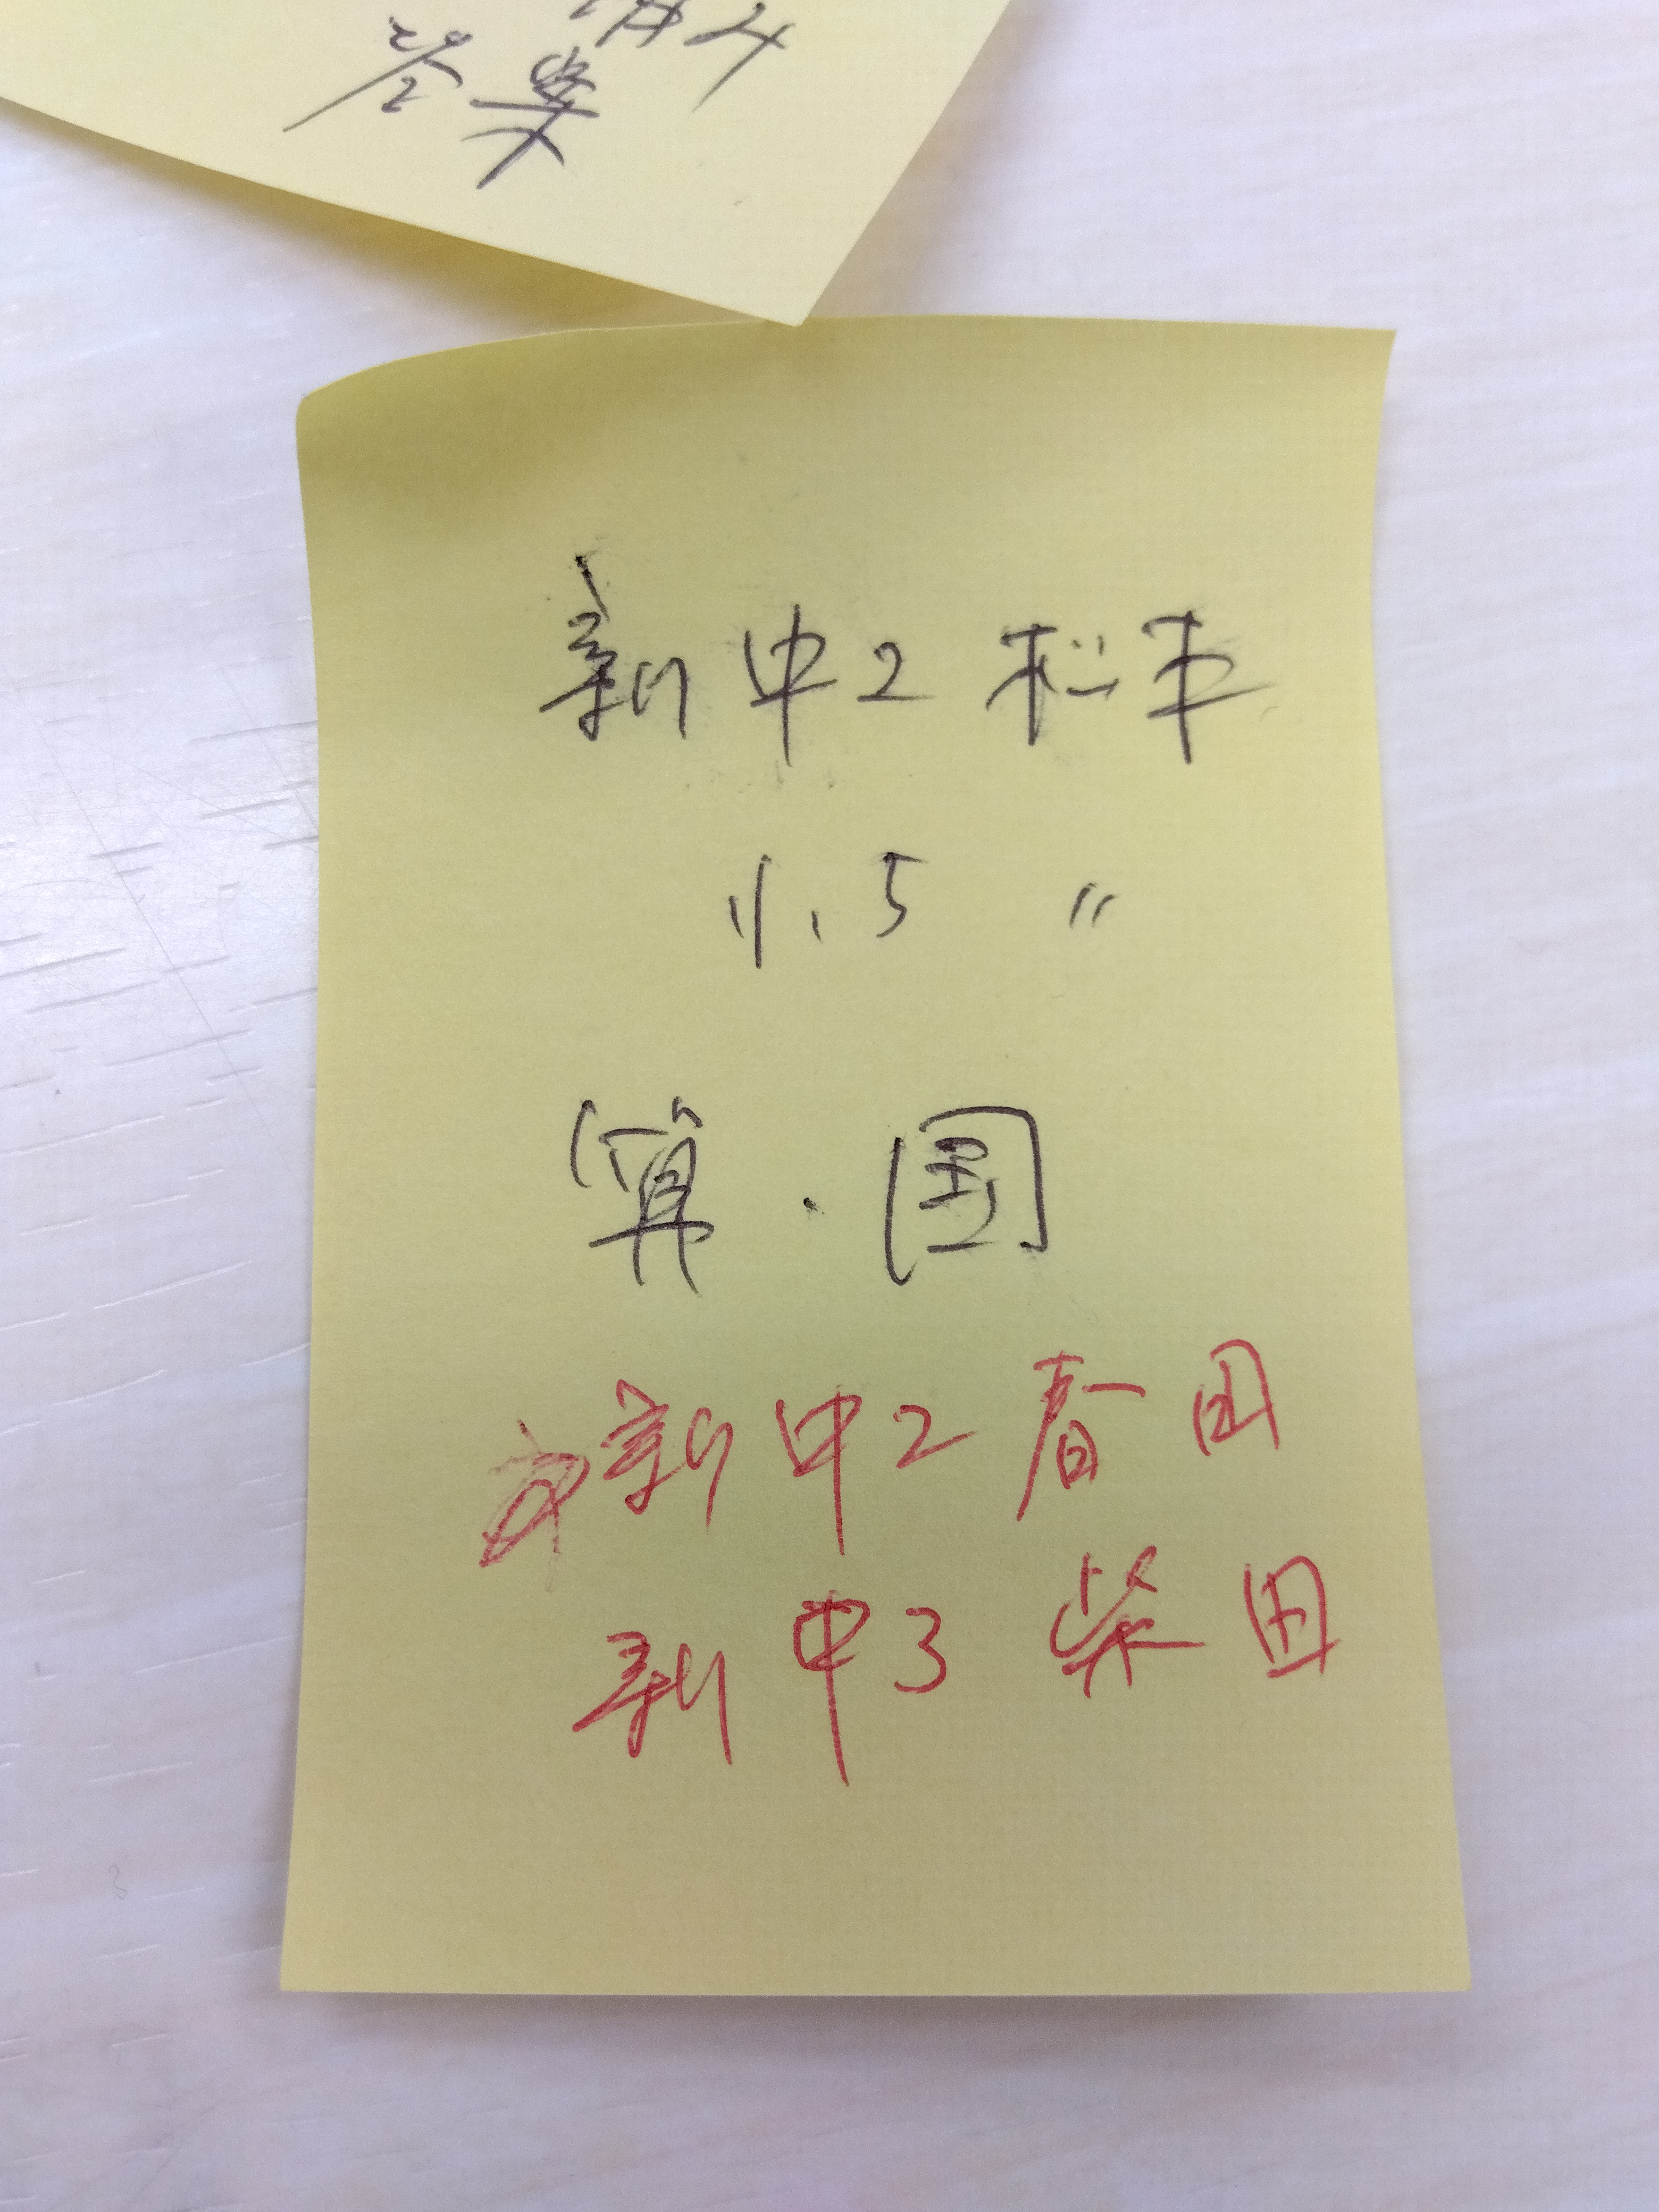 答案
新中2 松本
小5 〃
算・国
新中2 春田
新中3 柴田